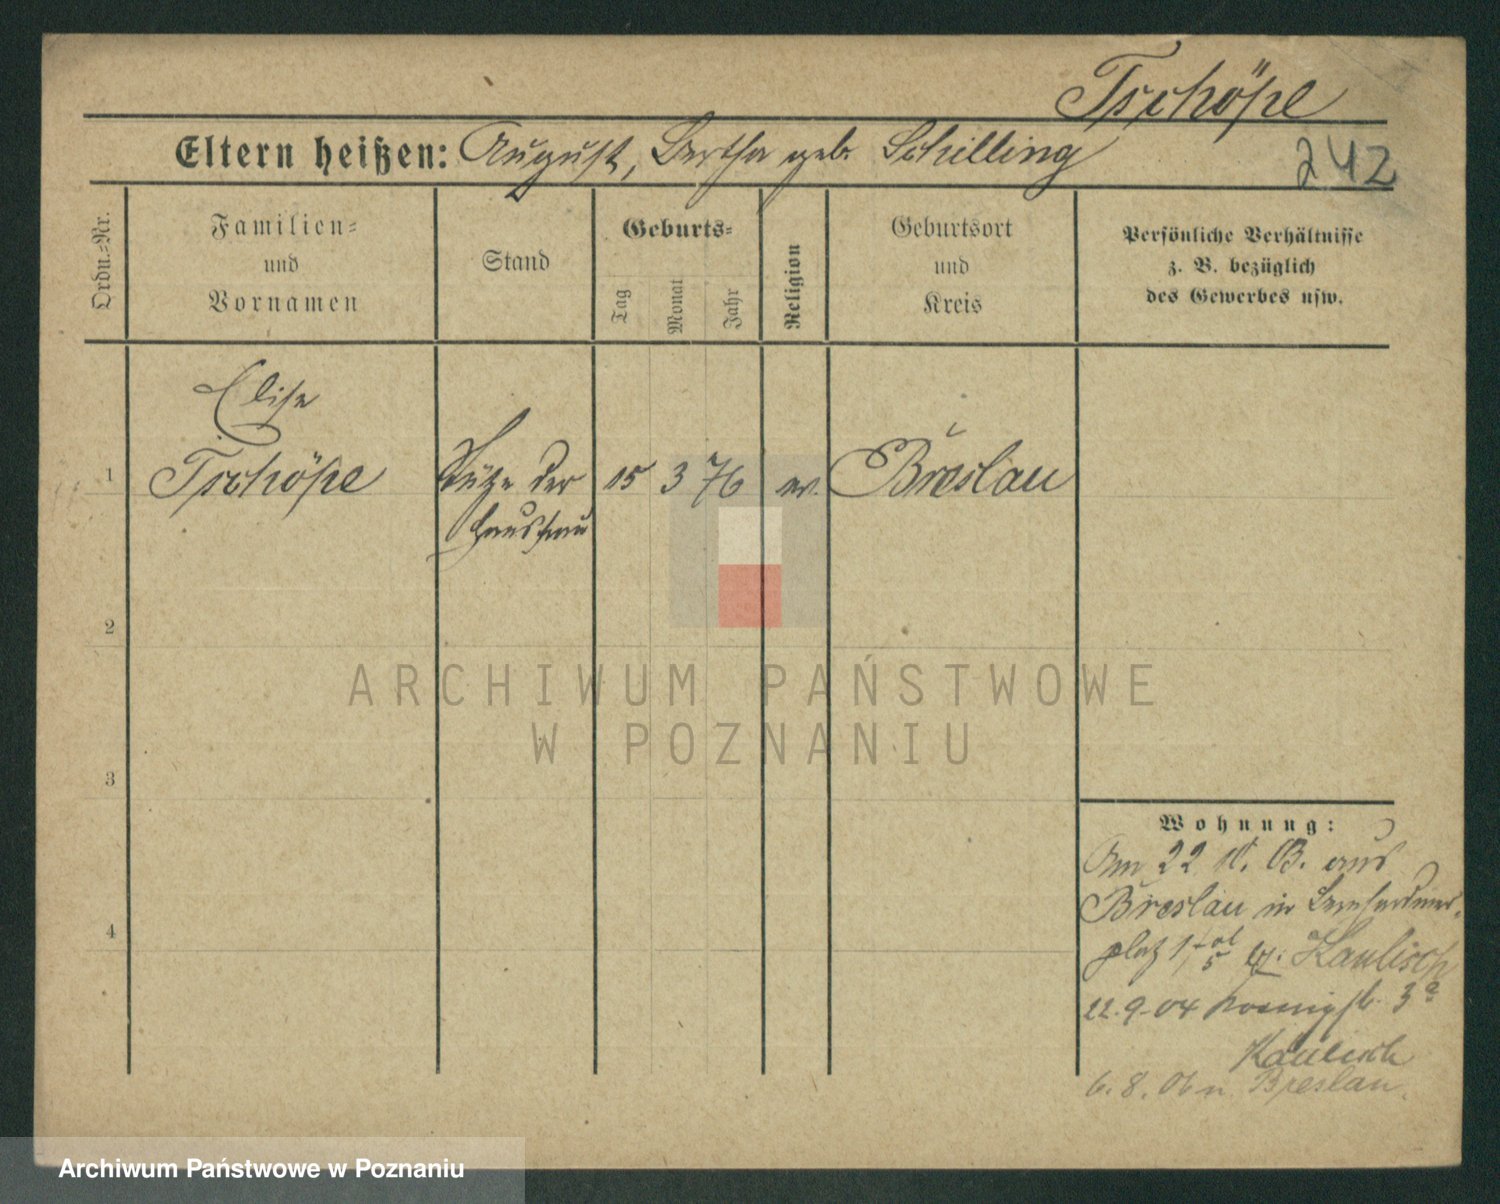 Tschöpe
Eltern heißen: August, Bertha geb. Schilling
242
Ordn.-Nr.
Familien-
und
Vornamen
Stand
Geburts-
Tag
Monat
Jahr
Religion
Geburtsort
und
Kreis
Persönliche Verhältnisse
z. B. bezüglich
des Gewerbes usw.
Elise
1 Tschöpe Stütze der 15 3 76 ev. Breslau
Hausfrau
2
3
4
ARCHIWUM PAŃSTWOWE
W POZNANIU
Wohnung:
Am 22 B. aus
Breslau in Bernhardiner-
platz 1 5 bei Kaulisch
22.9.04 Koenigstr. 3a
Kaulisch
6.8.06 n. Breslau.
Archiwum Państwowe w Poznaniu